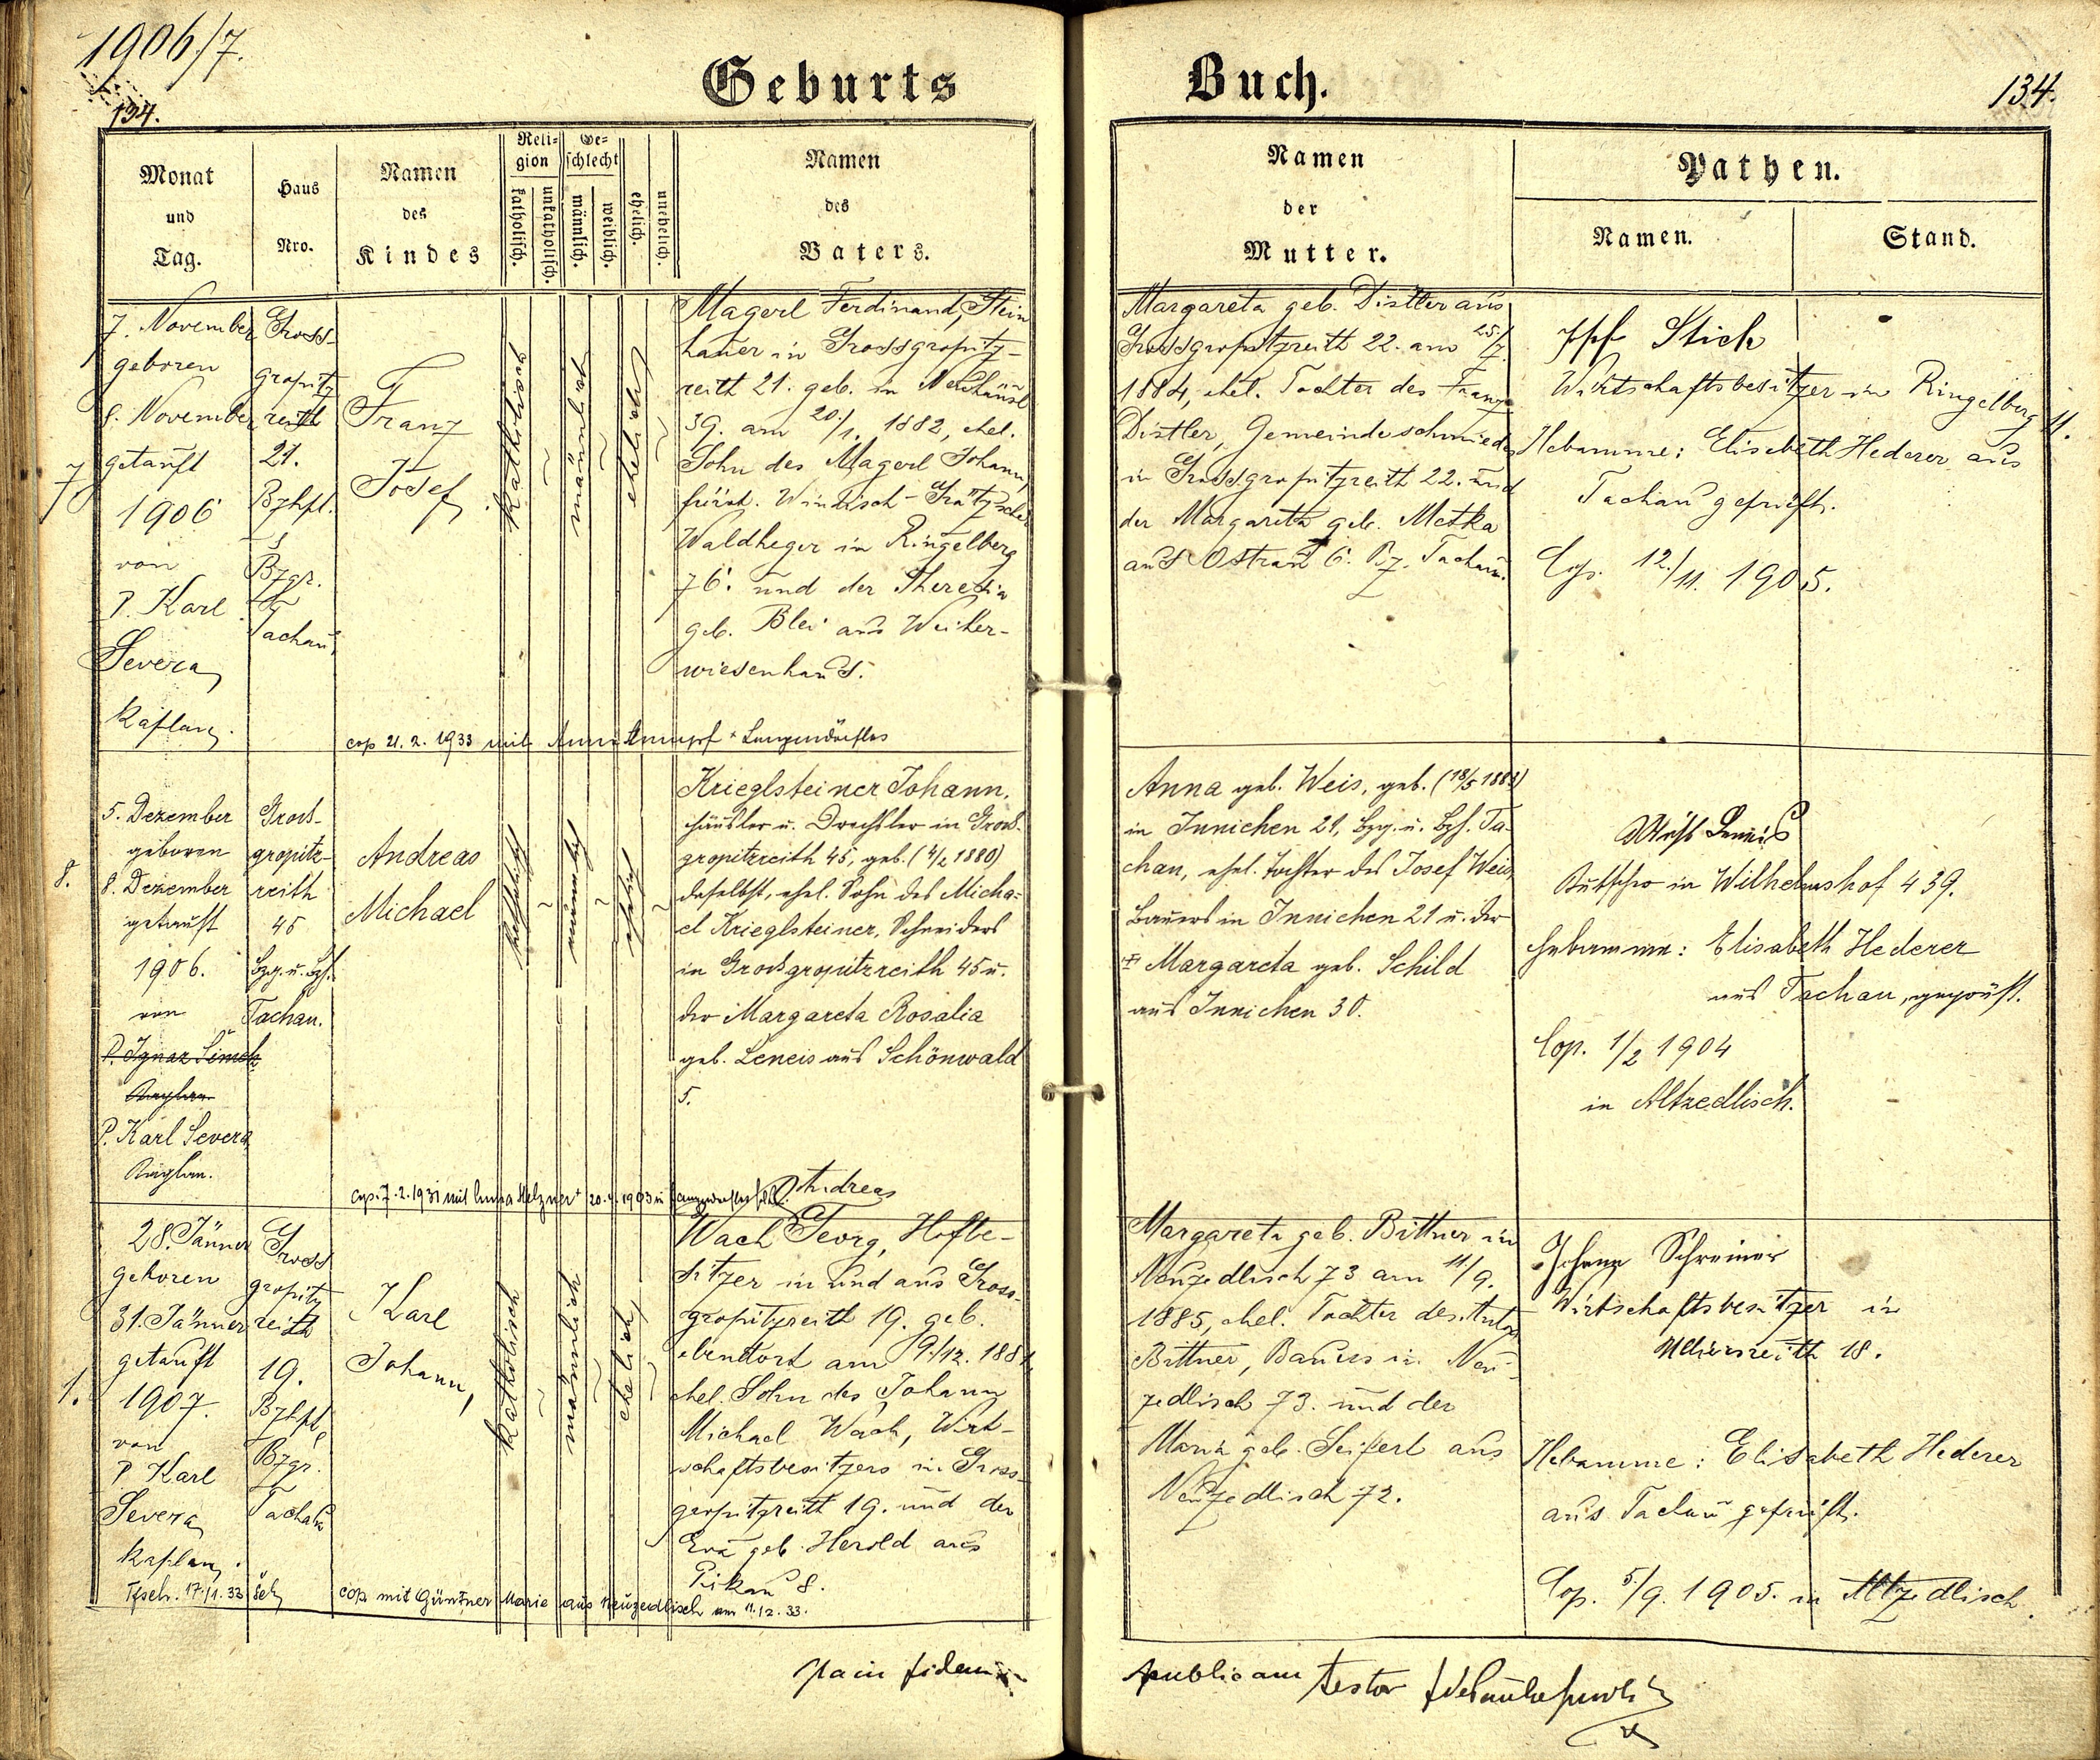 1906/7.
134.
Geburts
Buch.
134.
Monat
und
Tag.
Haus
Nro.
Namen
des
Kindes
Reli-
gion
katholisch.
unkatholisch.
Ge-
schlecht
männlich.
weiblich.
ehelich.
unehelich.
Namen
des
Vaters.
Namen
der
Mutter.
Pathen.
Namen.
Stand.
7
7. November
geboren
8. November
getauft
1906
von
P. Karl
Severa,
Kaplan.
Gross-
gropitz
reith
21.
Bzhpt.
Bzgr.
Tachau
Franz
Josef
katholisch
männlich
ehelich
Magerl Ferdinand, Stein
hauer in Grossgropitz-
reith 21. geb. in Neuhäusl
39. am 20./1. 1882, ehel.
Sohn des Magerl Johann,
fürstl. Windisch-Grätzscher
Waldheger in Ringelberg
76. und der Theresia
geb. Blei aus Weiher-
wiesenhaus.
cop 21.2.1933 mit
Margareta geb. Distler aus
Grossgropitzreith 22. am 25./7.
1884, ehel. Tochter des Franz
Distler, Gemeindeschmiedes
in Grossgropitzreith 22. und
der Margareth geb. Metka
aus 6. Bz. Tachau.
Stich
Wirtschaftsbesitzer in Ringelberg 11.
Hebamme: Elisabeth Hederer aus
Tachau geprüft.
Cop. 12./11. 1905.
8.
5. Dezember
geboren
8. Dezember
getauft
1906.
von
P. Ignaz Simek
Kaplan
P. Karl Severa
Kaplan.
Gross-
gropitz-
reith
45
Bzg. u. Bzh.
Tachau.
Andreas
Michael
katholisch
männlich
ehelich
Krieglsteiner Johann,
Häusler u. Drechsler in Gross-
gropitzreith 45, geb. (4/2 1880)
daselbst, ehel. Sohn des Micha-
el Krieglsteiner, Schneiders
in Grossgropitzreith 45 u.
der Margareta Rosalia
geb. Leneis aus Schönwald
5.
Cop. 7.2.1931 mit Anna Melzner
Andreas
Anna geb. Weis, geb. (18/5 1882)
in Innichen 21, Bzg. u. Bzh. Ta-
chau, ehel. Tochter des Josef Weis,
Bauers in Innichen 21 u. der
Margareta geb. Schild
aus Innichen 30.
Leneis
Kutscher in Wilhelmshof 439.
Hebamme: Elisabeth Hederer
aus Tachau, geprüft.
Cop. 1/2 1904
in Altzedlisch.
1.
28. Jänner
geboren
31. Jänner
getauft
1907.
von
P. Karl
Severa,
Kaplan.
Gross
gropitz
reith
19.
Bzhpt.
Bzgr.
Tachau
Karl
Johann,
katholisch
männlich
ehelich
Wach Georg, Hofbe-
sitzer in und aus Gross-
gropitzreith 19. geb.
ebendort am 9./12. 1881,
ehel. Sohn des Johann
Michael Wach, Wirt-
schaftsbesitzers in Gross-
gropitzreith 19. und der
Eva geb. Herold aus
Pirkau 8.
17./1. 33
cop mit Güntner Marie aus Neuzedlisch am 11.12.33.
Margareta geb. Bittner in
Neuzedlisch 73 am 11/9.
1885, ehel. Tochter des Anton
Bittner, Bauers in Neu-
zedlisch 73. und der
Maria geb. Seiferl aus
Neuzedlisch 72.
Johann Schreiner
Wirtschaftsbesitzer in
18.
Hebamme: Elisabeth Hederer
aus Tachau geprüft.
Cop. 5./9. 1905. in Altzedlisch.
fidem
publicam testor